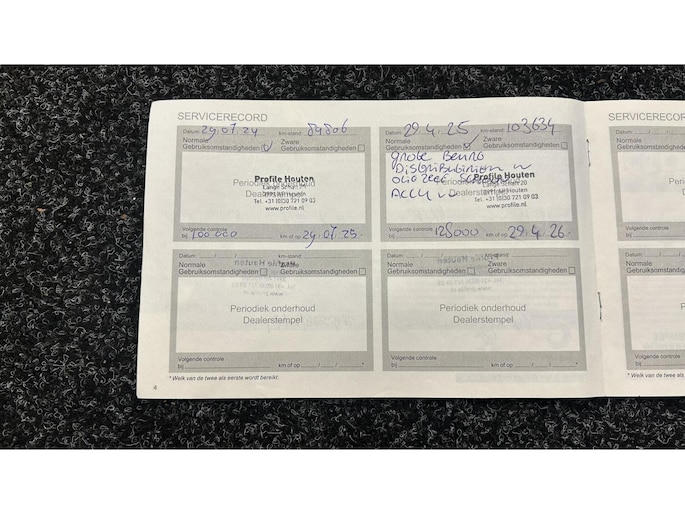 SERVICERECORD
Datum: 29.07.24 km-stand: 84806
Normale Zware
Gebruiksomstandigheden Gebruiksomstandigheden
Periodiek onderhoud
Dealerstempel
Profile Houten
Tel. +31 (0)30 721 09 03
www.profile.nl
Volgende controle
bij 100 000 km of op 29.07.25.
Datum: 29.4.25 km-stand: 103634
Normale Zware
Gebruiksomstandigheden Gebruiksomstandigheden
grote Beurt
Distributieriem
Accu
Periodiek onderhoud
Dealerstempel
Profile Houten
Tel. +31 (0)30 721 09 03
www.profile.nl
Volgende controle
bij 128000 km of op 29.4.26.
Datum: / / km-stand:
Normale Zware
Gebruiksomstandigheden Gebruiksomstandigheden
Periodiek onderhoud
Dealerstempel
Volgende controle
bij km of op / / *
Datum: / / km-stand:
Normale Zware
Gebruiksomstandigheden Gebruiksomstandigheden
Periodiek onderhoud
Dealerstempel
Volgende controle
bij km of op / / *
* Welk van de twee als eerste wordt bereikt.
4
SERVICERECOR
Datum:
Normale
Gebruiksomstandi
Volgende controle
bij
Datum:
Normale
Gebruiksomstandi
Volgende controle
bij
* Welk van de twee als